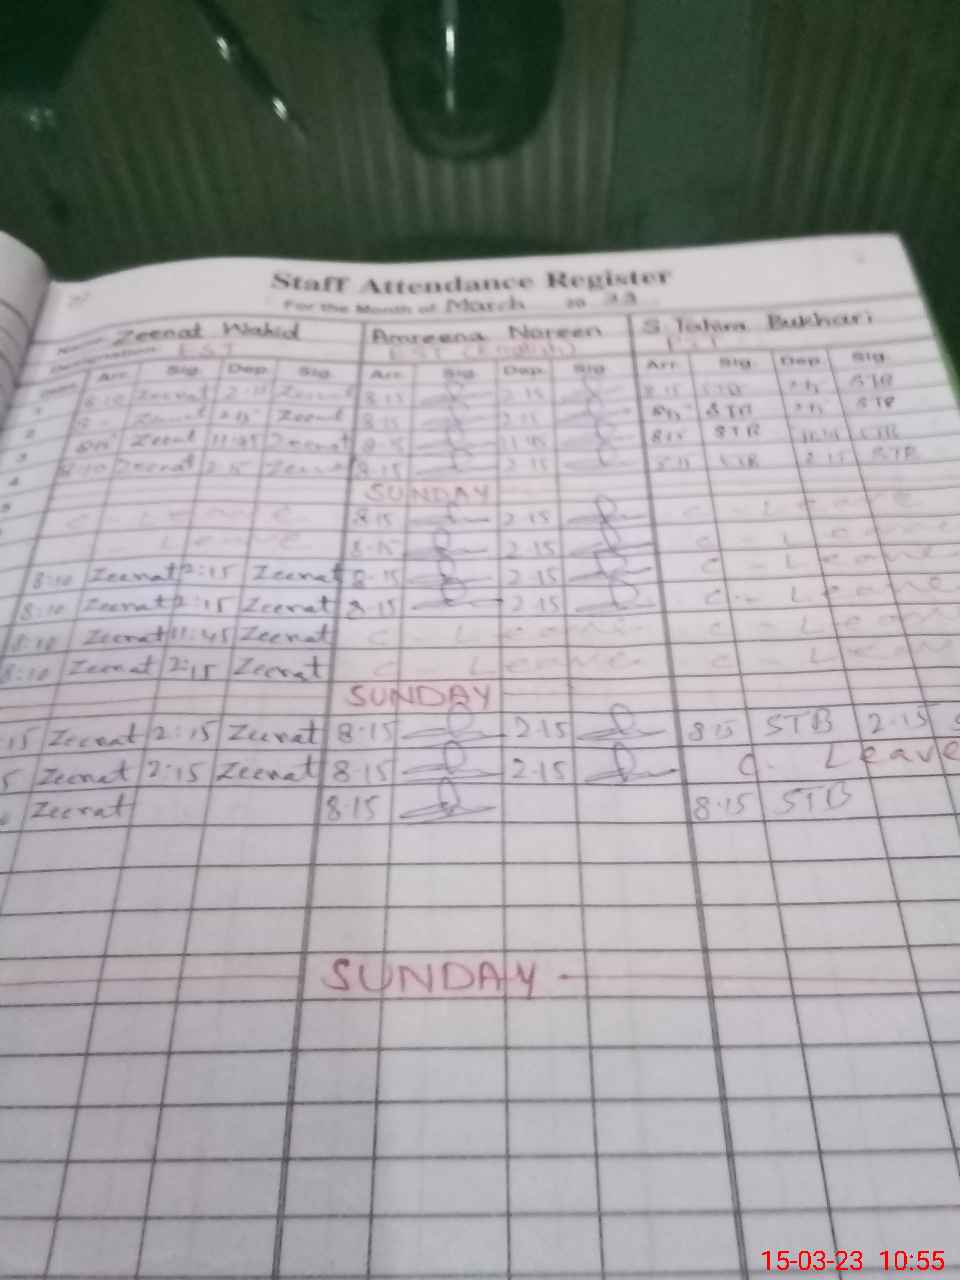 Staff Attendance Register
For the Month of March 20 23
Zeenat Wahid Amreena Noreen S Tahira Bukhari
EST EST (English)
Arr. Sig. Dep. Sig. Arr. Sig. Dep. Sig. Arr. Sig. Dep. Sig.
1 8:10 Zeenat Zeenat 8.15 2.15 8.15 STB STB
2 Zeenat 8.15 2.15 STB STB
3 Zeenat 11:45 Zeenat 8.15 11.45 8.15 STB STB
4 8:10 Zeenat 2:15 Zeenat 8.15 2.15 STB 2.15 STB
5 SUNDAY
C - Leave 8.15 2.15 C - Leave
Leave 8.15 2.15 C - Leave
8:10 Zeenat 2:15 Zeenat 8.15 2.15 C - Leave
8:10 Zeenat 2:15 Zeenat 8.15 2.15 C - Leave
8:10 Zeenat 11:45 Zeenat C - Leave C - Leave
8:10 Zeenat 2:15 Zeenat C - Leave C - Leave
SUNDAY
15 Zeenat 2:15 Zeenat 8.15 2.15 8.15 STB 2.15
5 Zeenat 2:15 Zeenat 8.15 2.15 C. Leave
Zeenat 8.15 8.15 STB
SUNDAY -
15-03-23 10:55